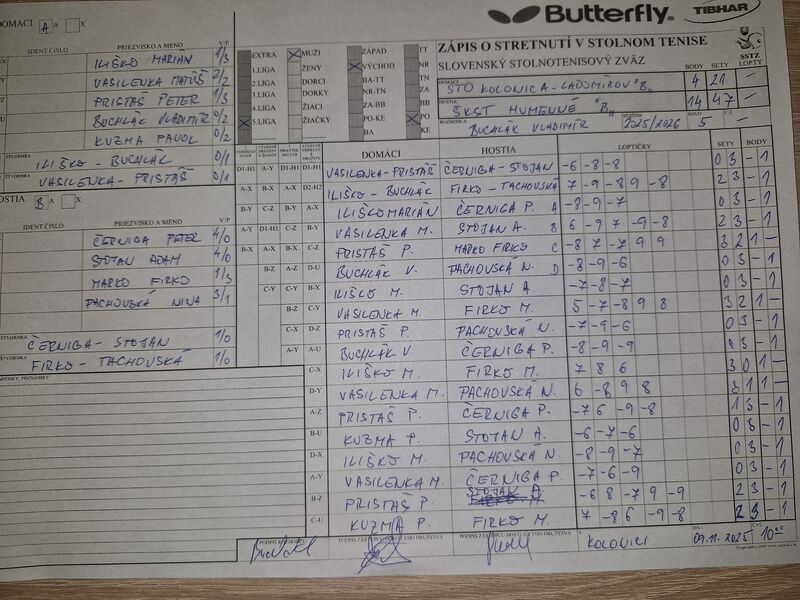 Butterfly
TIBHAR
DOMÁCI A A X
ZÁPIS O STRETNUTÍ V STOLNOM TENISE
SLOVENSKÝ STOLNOTENISOVÝ ZVÄZ
SSTZ
IDENT.ČÍSLO PRIEZVISKO A MENO V/P
ILIŠKO MARIÁN 1/3
VASILENKA MATÚŠ 2/2
PRISTAŠ PETER 1/3
BUCHLÁK VLADIMÍR 0/2
KUZMA PAVOL 0/2
ŠTVORHRA ILIŠKO - BUCHLÁK 0/1
ŠTVORHRA VASILENKA - PRISTAŠ 0/1
EXTRA MUŽI ZÁPAD TT
1.LIGA ŽENY VÝCHOD NR
2.LIGA DORCI BA-TT TN
3.LIGA DORKY TN-TN ZA
4.LIGA ŽIACI ZA-BB BB
5.LIGA ŽIAČKY PO-KE PO
BA KE
DOMÁCI STO KOLONICA-LADOMÍROV "B"
HOSTIA ŠKST HUMENNÉ "B"
ROZHODCA BUCHLÁK VLADIMÍR SEZÓNA 2025/2026 KOLO 5
BODY SETY LOPTY
4 21 -
14 47 -
HOSTIA B A X
IDENT.ČÍSLO PRIEZVISKO A MENO V/P
ČERNIGA PETER 4/0
STOJAN ADAM 4/0
MARKO FIRKO 1/3
PACHOVSKÁ NINA 3/1
ŠTVORHRA ČERNIGA - STOJAN 1/0
ŠTVORHRA FIRKO - PACHOVSKÁ 1/0
DOMÁCI HOSTIA LOPTIČKY SETY BODY
VASILENKA - PRISTAŠ ČERNIGA - STOJAN -6 -8 -8 0 3 - 1
ILIŠKO - BUCHLÁK FIRKO - TACHOVSKÁ 7 -9 -8 9 -8 2 3 - 1
ILIŠKO MARIÁN ČERNIGA P. A -8 -9 -7 0 3 - 1
VASILENKA M. STOJAN A. B 6 -9 7 -9 -8 2 3 - 1
PRISTAŠ P. MARKO FIRKO C -8 7 -7 9 9 3 2 1 -
BUCHLÁK V. PACHOVSKÁ N. D -8 -9 -6 0 3 - 1
ILIŠKO M. STOJAN A. -7 -8 -7 0 3 - 1
VASILENKA M. FIRKO M. 5 -7 -8 9 8 3 2 1 -
PRISTAŠ P. PACHOVSKÁ N. -7 -9 -6 0 3 - 1
BUCHLÁK V ČERNIGA P. -8 -9 -9 0 3 - 1
ILIŠKO M. FIRKO M. 7 8 6 3 0 1 -
VASILENKA M. PACHOVSKÁ N. 6 -8 9 8 3 1 1 -
PRISTAŠ P. ČERNIGA P. -7 6 -9 -8 1 3 - 1
KUZMA P. STOJAN A. -6 -7 -6 0 3 - 1
ILIŠKO M. PACHOVSKÁ N. -8 -9 -7 0 3 - 1
VASILENKA M. ČERNIGA P. -7 -6 -9 0 3 - 1
PRISTAŠ P. STOJAN A. -6 8 -7 9 -9 2 3 - 1
KUZMA P. FIRKO M. 7 -8 6 -9 -8 2 3 - 1
PODPIS ROZHODCU
V KOLONICI DŇA 09.11.2025 ČAS 10:00